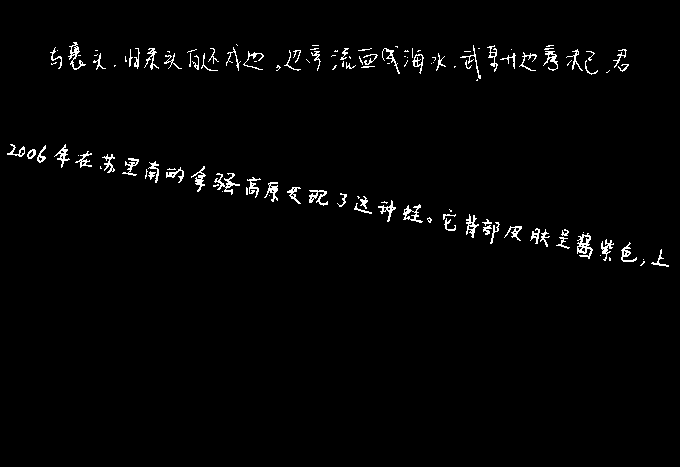 与裹头,归来头白还戍边。边亭流血成海水,武皇开边意未已,君
2006年在苏里南的拿骚高原发现了这种蛙。它背部皮肤呈酱紫色,上